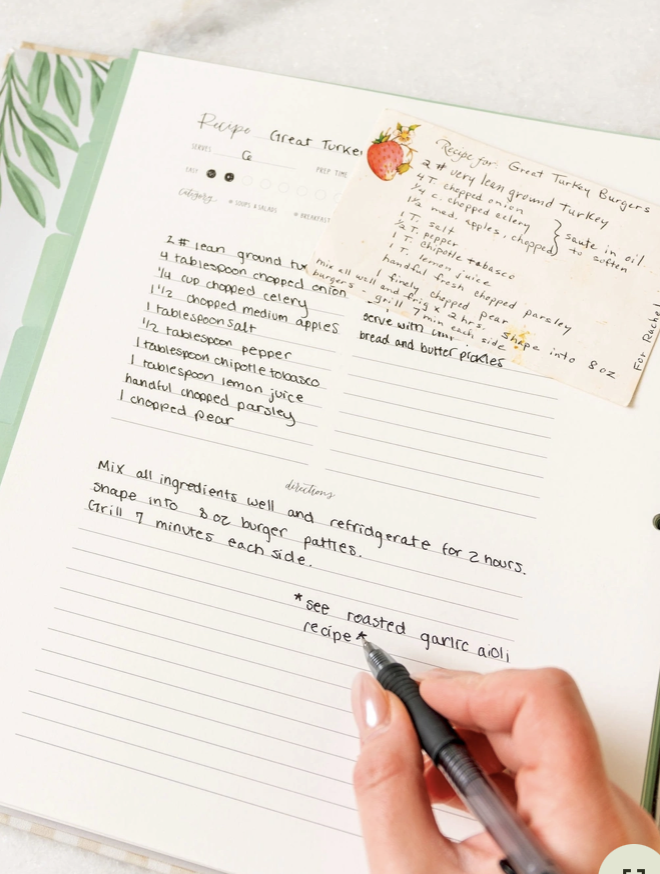 Recipe Great Turke
SERVES
PREP TIME
EASY
category
SOUPS & SALADS
BREAKFAST
2 # lean ground tu
4 tablespoon chopped onion
1/4 cup chopped celery
1 1/2 chopped medium apples
1 tablespoon salt
1/2 tablespoon pepper
1 tablespoon chipotle tobasco
1 tablespoon lemon juice
handful chopped parsley
1 chopped pear
serve with
bread and butter pickles
directions
Mix all ingredients well and refridgerate for 2 hours.
shape into 8 oz burger patties.
Grill 7 minutes each side.
*see roasted garlic aioli
recipe*
Recipe for Great Turkey Burgers
2 # very lean ground Turkey
4 T. chopped onion
1/4 c. chopped celery
1 1/2 med. apples, chopped
} saute in oil
to soften
1 T. salt
1/2 T. pepper
1 T. Chipotle tabasco
1 T. lemon juice
handful fresh chopped parsley
1 finely chopped pear
Mix all well and frig x 2 hrs. Shape into 8 oz
burgers - grill 7 min each side
For Rachel